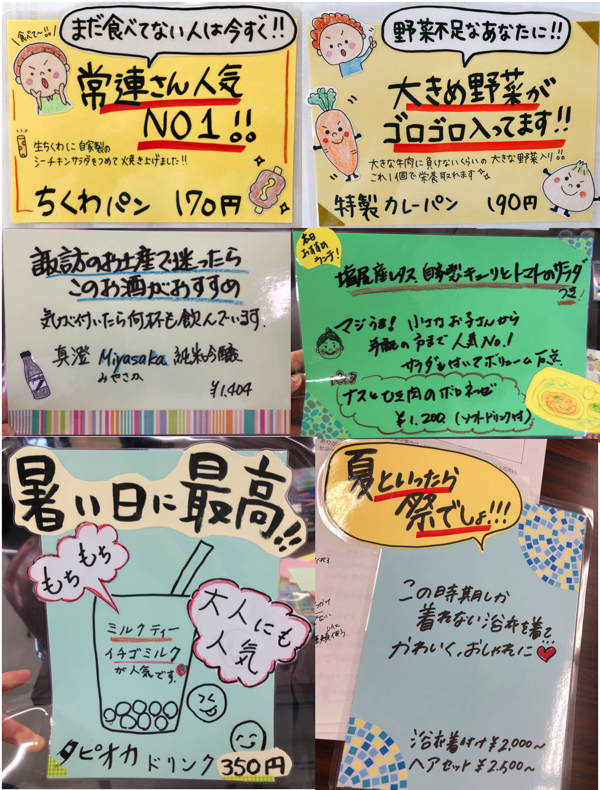 食べて〜!!
まだ食べてない人は今すぐ!!
常連さん人気
NO1!!
生ちくわに自家製の
シーチキンサラダをつめて焼き上げました!!
ちくわパン 170円
野菜不足なあなたに!!
大きめ野菜が
ゴロゴロ入ってます!!
大きな牛肉に負けないくらいの大きな野菜入り!!
これ1個で栄養取れます
特製カレーパン 190円
諏訪のお土産で迷ったら
このお酒がおすすめ
気が付いたら何杯も飲んでいます.
真澄 Miyasaka 純米吟醸
みやさか
¥1,404
本日
おすすめ
ランチ!
塩尻産レタス 自家製キューリとトマトのサラダ
つき!
マジうま! 小さなお子さんから
年配の方まで人気No.1
サラダも付いてボリューム万点
ナスとひき肉のボロネーゼ
¥1,200 (ソフトドリンク付)
暑い日に最高!!
もちもち
もちもち
大人にも
人気
ミルクティー
イチゴミルク
が人気です
タピオカドリンク 350円
夏といったら
祭でしょ!!!
この時期しか
着れない浴衣を着て
かわいく、おしゃれに
浴衣着付け¥2,000〜
ヘアセット¥2,500〜